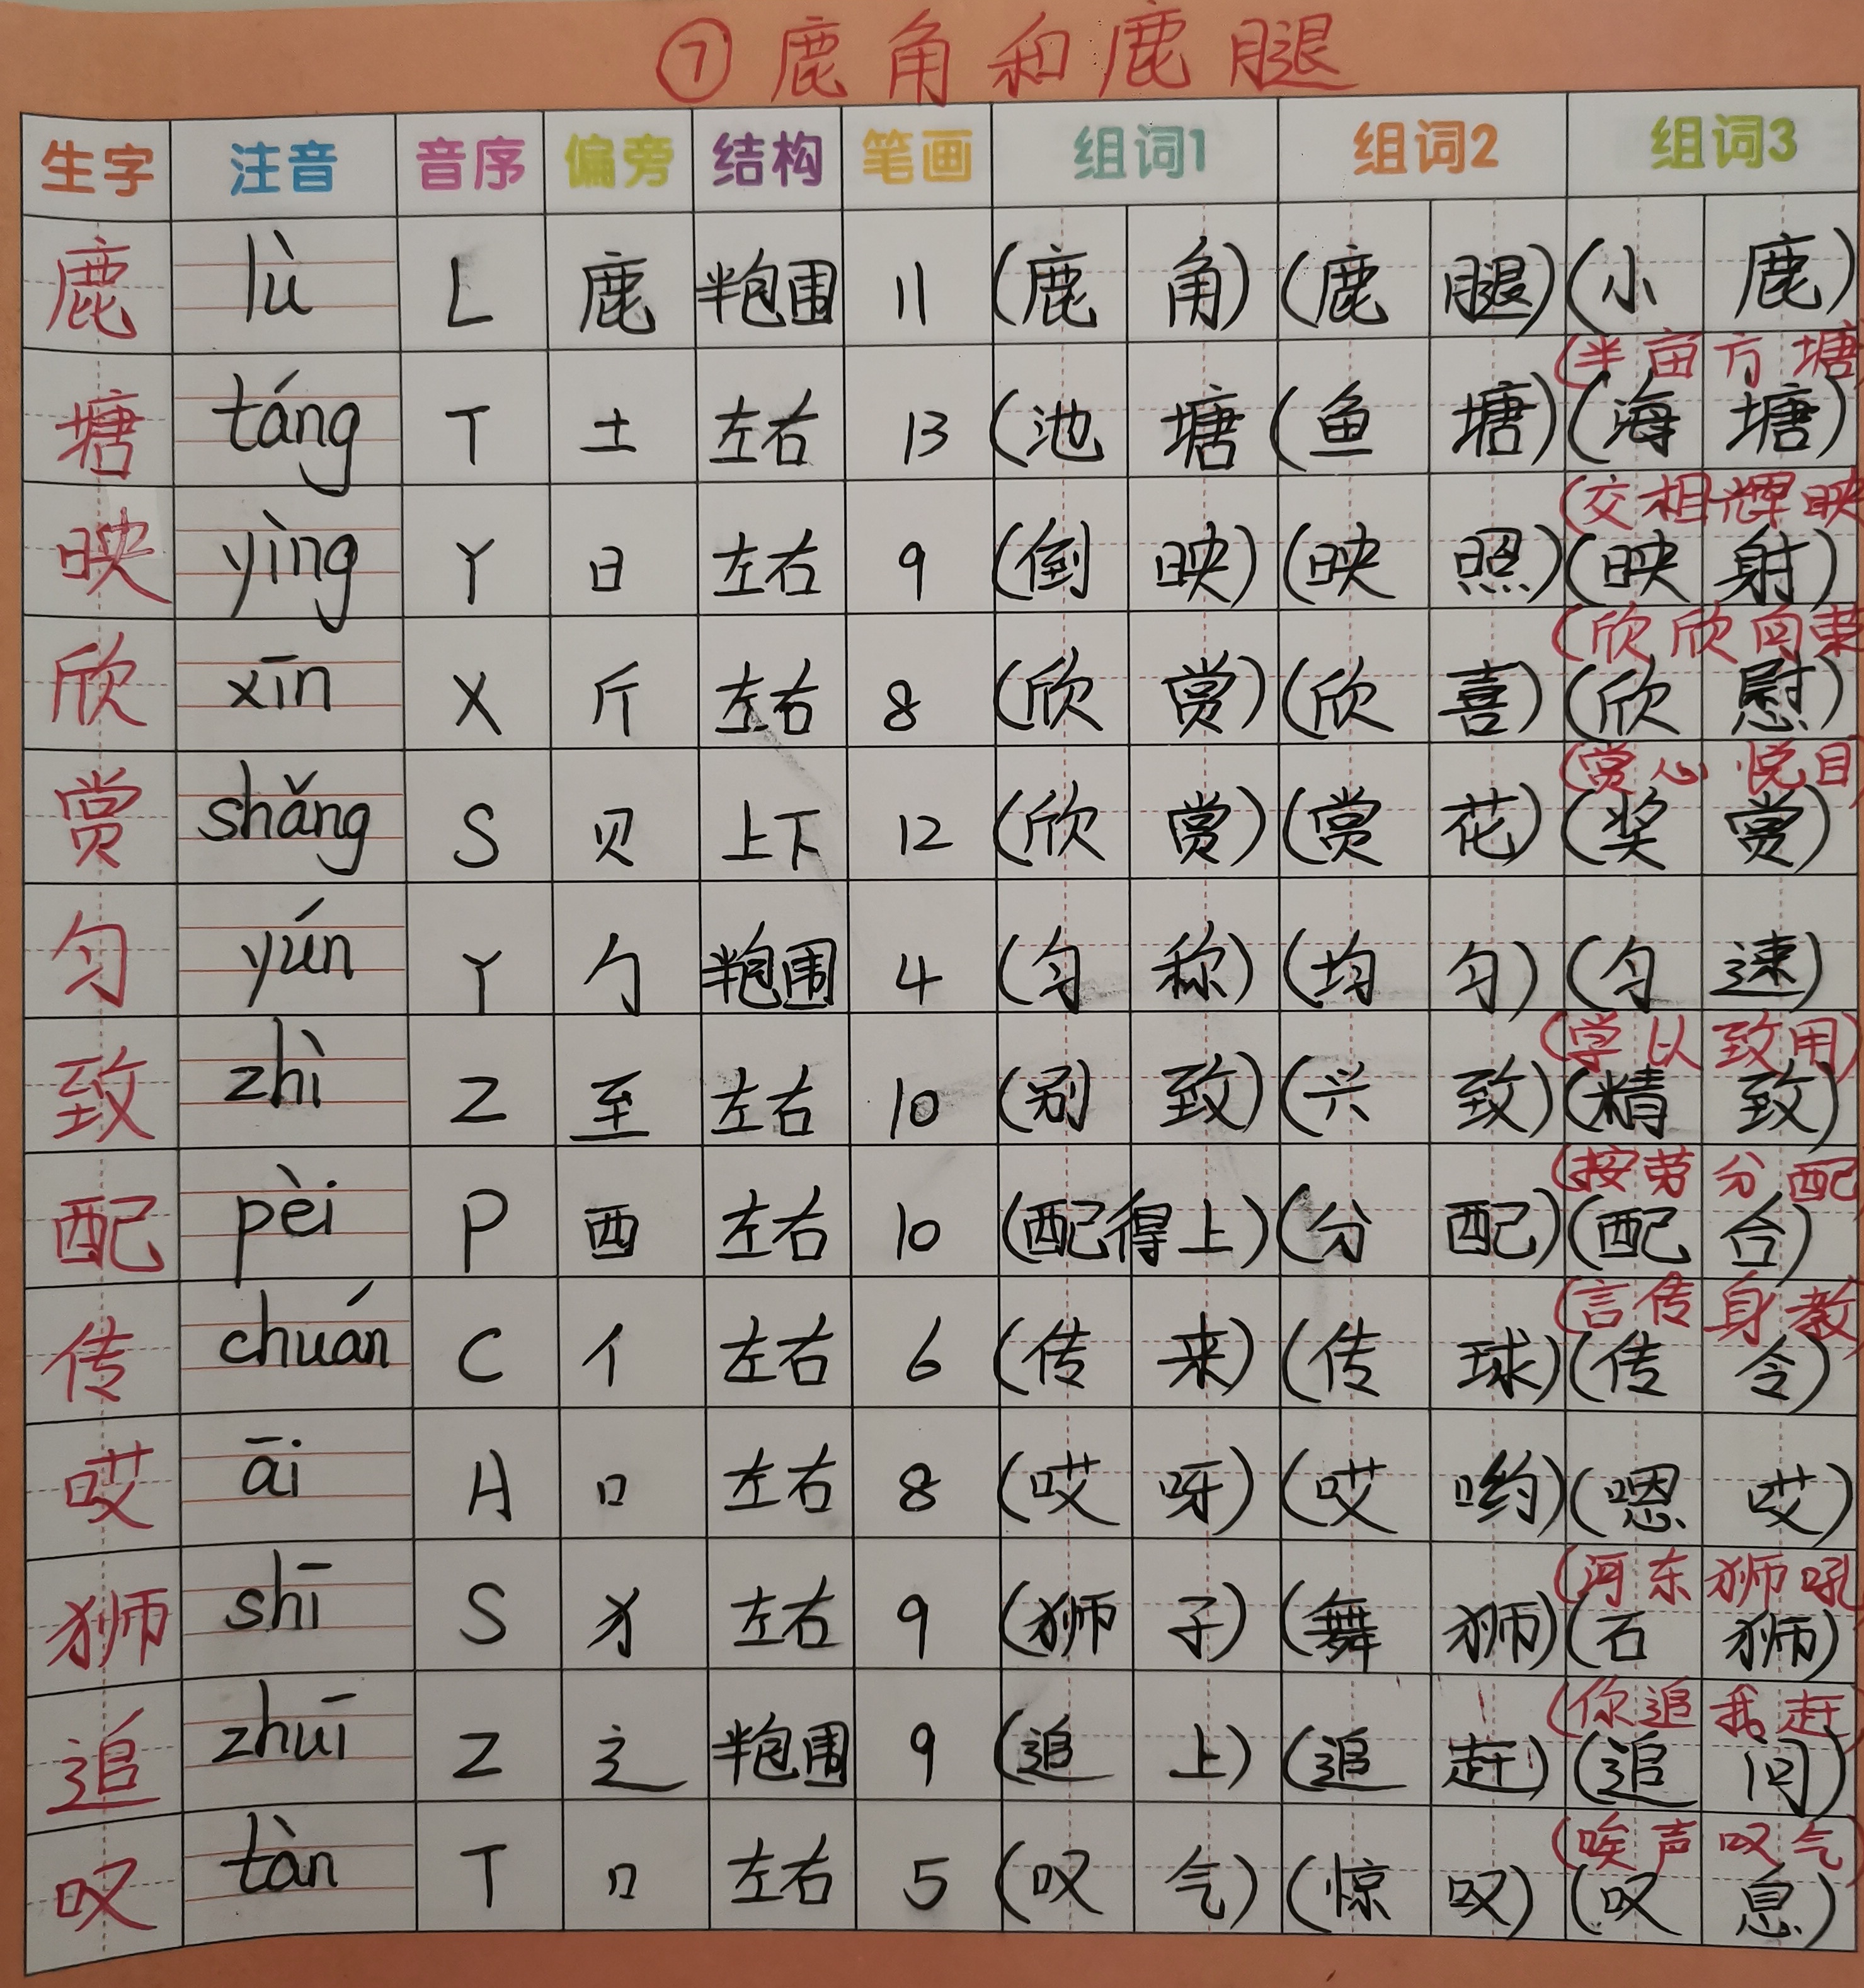 ⑦鹿角和鹿腿
生字 注音 音序 偏旁 结构 笔画 组词1 组词2 组词3
鹿 lù L 鹿 半包围 11 (鹿角) (鹿腿) (小鹿)
(半亩方塘)
塘 táng T 土 左右 13 (池塘 (鱼塘) (海塘)
(交相辉映
映 yìng Y 日 左右 9 (倒映) (映照) (映射)
(欣欣向荣
欣 xīn X 斤 左右 8 (欣赏) (欣喜) (欣慰)
(赏心悦目)
赏 shǎng S 贝 上下 12 (欣赏) (赏花) (奖赏)
匀 yún Y 勹 半包围 4 (匀称) (均匀) (匀速)
(学以致用)
致 zhì Z 至 左右 10 (别致) (兴致) (精致)
(按劳分配
配 pèi P 西 左右 10 (配得上) (分配) (配合)
(言传身教)
传 chuán C 亻 左右 6 (传来) (传球) (传令)
哎 āi A 口 左右 8 (哎呀) (哎哟) (嗯哎)
(河东狮吼
狮 shī S 犭 左右 9 (狮子) (舞狮) (石狮)
(你追我赶)
追 zhuī Z 辶 半包围 9 (追上) (追赶) (追问)
(唉声叹气)
叹 tàn T 口 左右 5 (叹气) (惊叹) (叹息)